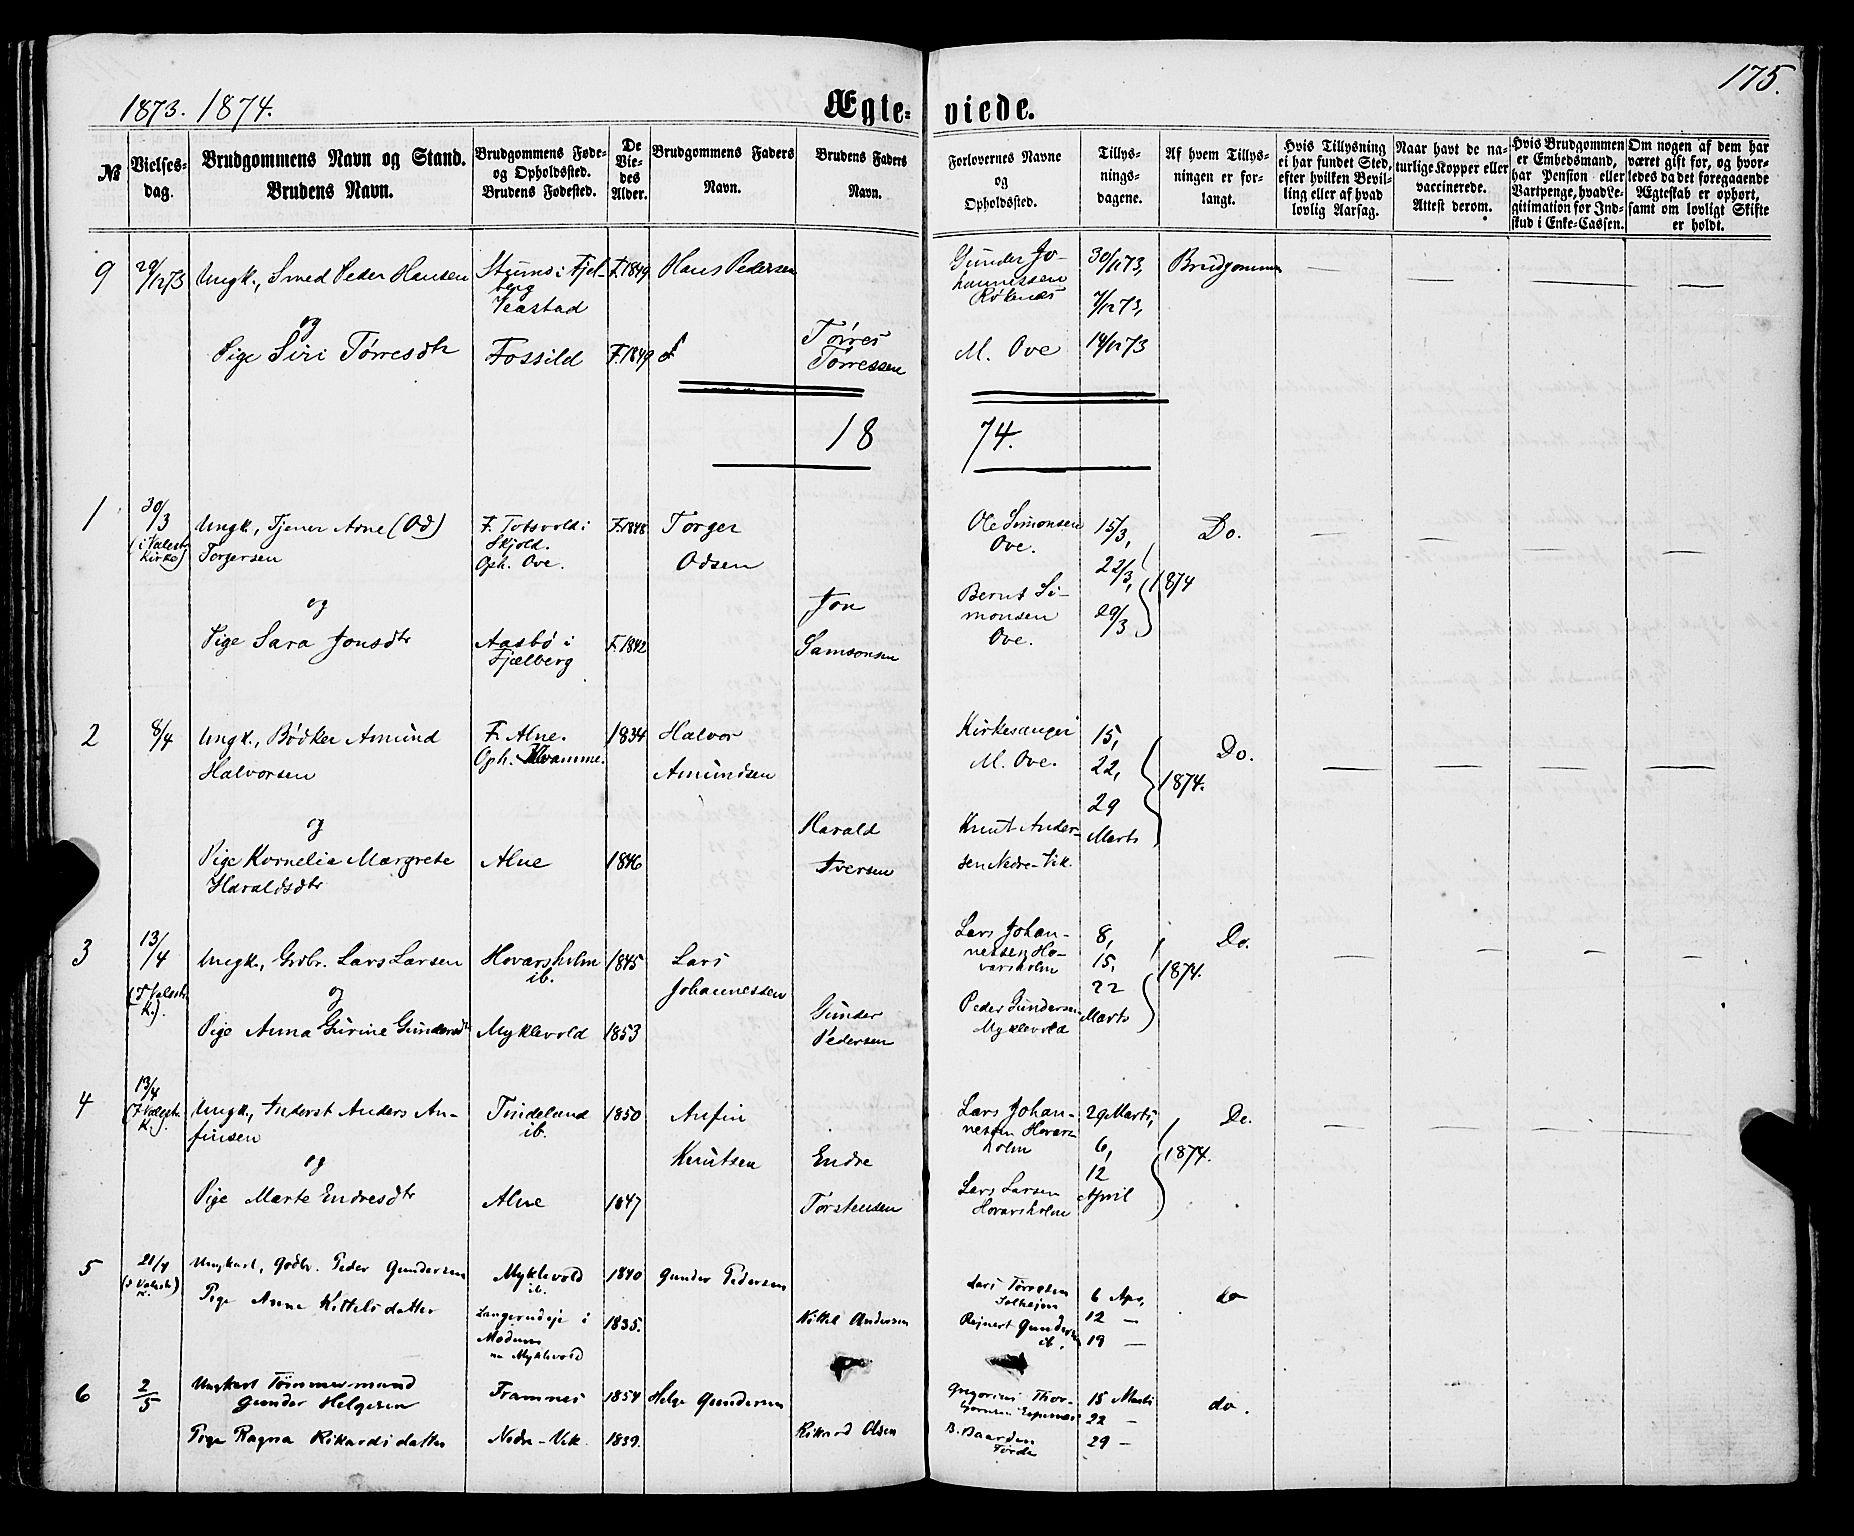 175.
1873. 1874.
Ægte-viede.
№
Vielses-
dag.
Brudgommens Navn og Stand.
Brudens Navn.
Brudgommens Føde-
og Opholdssted.
Brudens Fødested.
De
Vie-
des
Alder.
Brudgommens Faders
Navn.
Brudens Faders
Navn.
Forlovernes Navne
og
Opholdssted.
Tillys-
nings-
dagene.
Af hvem Tillys-
ningen er for-
langt.
Hvis Tillysning
ei har fundet Sted,
efter hvilken Bevil-
ling eller af hvad
lovlig Aarsag.
Naar havt de na-
turlige Kopper eller
vaccinerede.
Attest derom.
Hvis Brudgommen
er Embedsmand,
har Pension eller
Vartpenge, hvad Le-
gitimation for Ind-
skud i Enke-Cassen.
Om nogen af dem har
været gift før, og hvor-
ledes da det foregaaende
Ægteskab er ophørt,
samt om lovligt Skifte
er holdt.
9
29/12 73
Ungk., Smed Peder Hansen
og
Pige Siri Tørresdtr
Fjel-
berg
Fossild
F. 1849
F. 1849
Hans Pedersen
Tørres
Tørressen
Gunder Jo-
hannessen
Røknes
M. Ove
30/11 73,
7/12 73,
14/12 73
Brudgommen
18 74.
1
30/3
(i Valest.
Kirke)
Ungk., Tjener Arne (Od)
Torgersen
og
Pige Sara Jonsdtr
Skjold.
Oph. Ove.
Aasbø i
Fjælberg
F. 1848
F. 1842
Torger
Odsen
Jon
Samsonsen
Ole Simonsen
Ove.
Bernt Si-
monsen
Ove.
15/3,
22/3,
29/3
1874
Do.
2
8/4
Ungk., Bødker Amund
Halvorsen
og
Pige Kornelia Margrete
Haraldsdtr
F. Alne.
Oph. Kvamme.
Alne
1834
1846
Halvor
Amundsen
Harald
Iversen
Kirkesanger
M. Ove.
Knut Ander-
sen Nedre-Vik.
15,
22,
29
Marts
1874.
Do.
3
13/4
(I Valestr.
K.).
Ungk., Grdbr. Lars Larsen
og
Pige Anna Gurine Gundersdtr
Hovarsholm
ib.
Myklevold
1845
1853
Lars
Johannessen
Gunder
Pedersen
Lars Johan-
nessen Ho-
varsholm
Peder Gundersen
Myklevold
8,
15,
22
Marts
1874.
Do.
4
13/4
(I Valestr.
K.).
Ungk., Anders An-
finsen
og
Pige Marta Endresdtr
Tindeland
ib.
Alne
1850
1847
Anfin
Knutsen
Endre
Torstensen
Lars Johan-
nessen Hovars-
holm
Lars Larsen
Hovarsholm
29 Marts,
6,
12
April
1874.
Do.
5
21/4
Ungkarl, Gdbr. Peder Gundersen
Pige Anne Kittelsdatter
Myklevold
ib.
i
Modum
nu Myklevold
1840
1835.
Gunder Pedersen
Kittel Andersen
Lars Tørresen
Solheim
Rejnert Gundersen
ib.
6 Apr.
12 —
19 —
do
6
2/5
Ungkarl Tømmermand
Gunder Helgesen
Pige Ragna Rikardsdatter
Framnes
Nedre-Vik
1854
1839.
Helge Gundersen
Rikard Olsen
Gregorius Thor-
B. Baardsen
15 Marts
22 —
29 —
do.